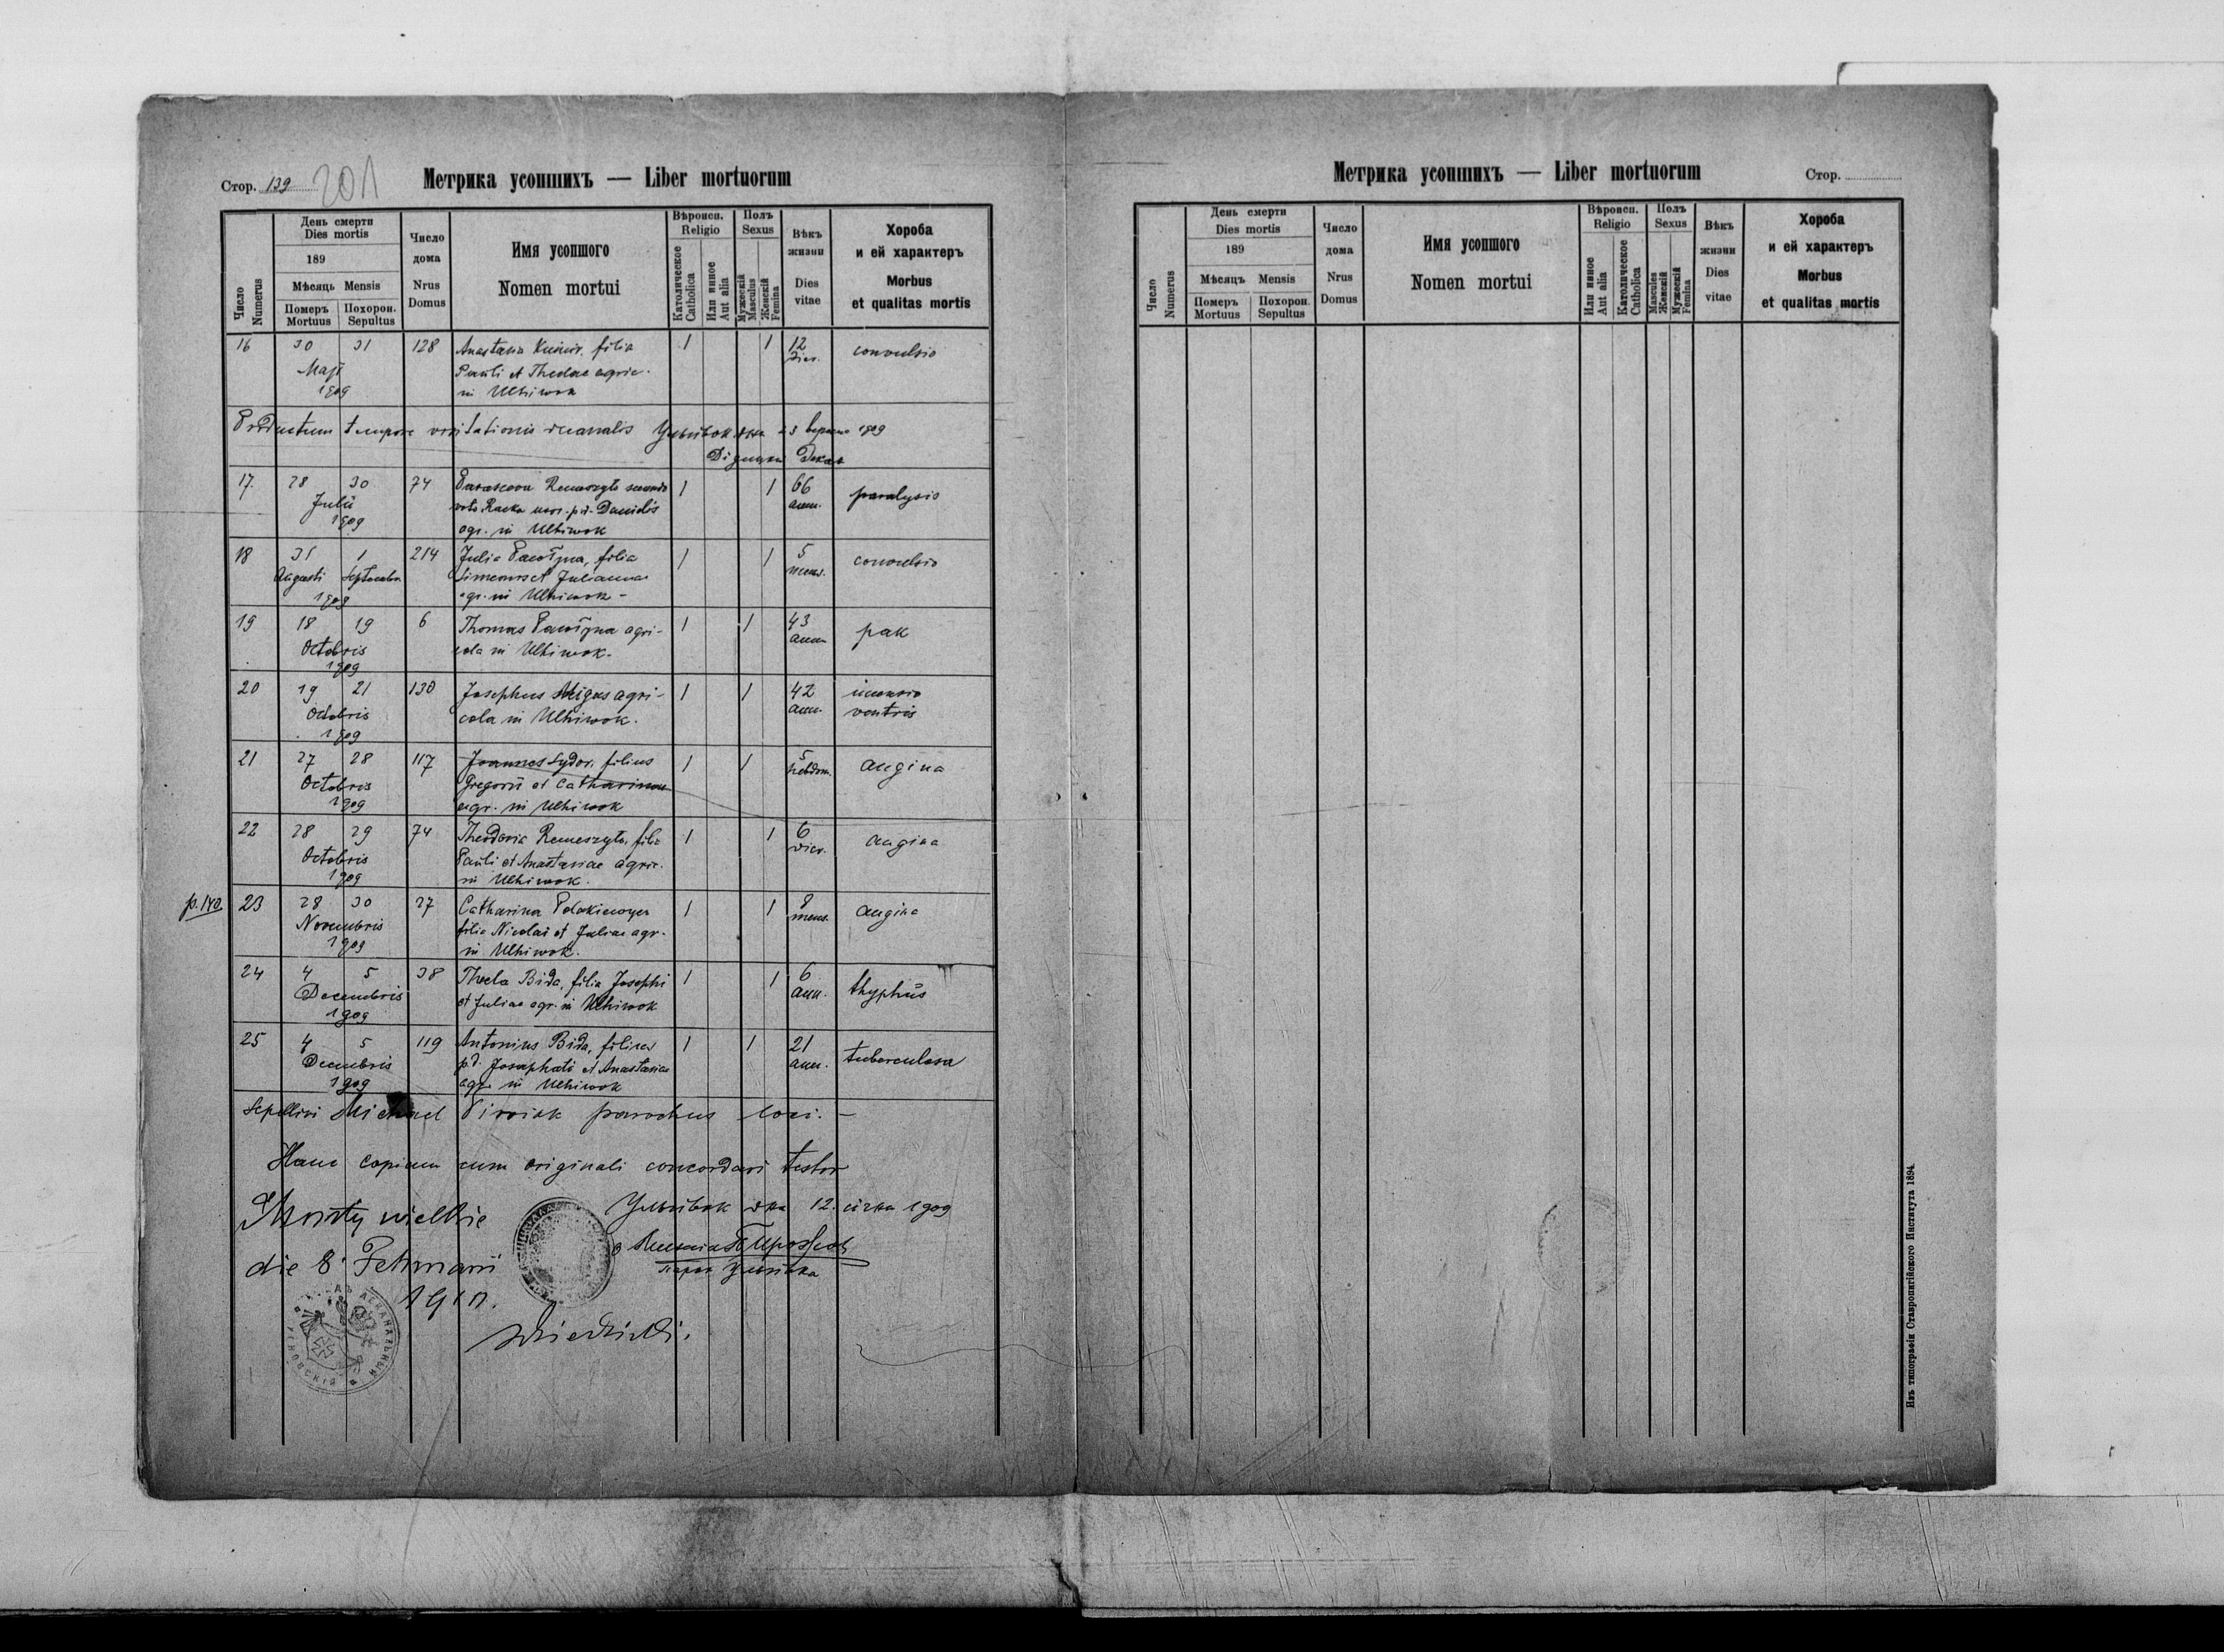 Стор. 139 201
Метрика усопшихъ — Liber mortuorum
Число Numerus
День смерти
Dies mortis
189
Мѣсяць Mensis
Померъ Mortuus
Похорон. Sepultus
Число дома
Nrus Domus
Имя усопшого
Nomen mortui
Вѣроисп.
Religio
Католическое Catholica
Или инное Aut alia
Полъ
Sexus
Мужескій Masculus
Женскій Femina
Вѣкъ жизни
Dies vitae
Хороба
и ей характеръ
Morbus
et qualitas mortis
16 30 31 128 Anastasia filia 1 1 12 convulsio
Maji Pauli et Theclae agric. dier.
1909 in Uhhiwok
Productum tempore visitationis decanalis 1909
17. 28 30 74 Parasceva Remeszyło secundo 1 1 66 paralysis
Julii voto Racka uxor. p.d. Danielis ann.
1909 agr. in Uhhiwok
18 31 1 214 Julia filia 1 1 5 convulsio
Augusti Septembr. Simeonis et Julianna mens.
1909 agr. in Uhhiwok -
19 18 19 6 Thomas agri- 1 1 43 рак
Octobris cola in Uhhiwok. ann.
1909
20 19 21 130 Josephus agri- 1 1 42
Octobris cola in Uhhiwok. ann. ventris
1909
21 27 28 117 Joannes Sydor, filius 1 1 5 angina
Octobris Gregorii et Catharinae hebdom.
1909 agr. in Uhhiwok
22 28 29 74 Theodosia Remeszyło, filia 1 1 6 angina
Octobris Pauli et Anastasiae agric. dier.
1909 in Uhhiwok.
p. 140. 23 28 30 27 Catharina 1 1 8 angina
Novembris filia Nicolai et Juliae agr. mens.
1909 in Uhhiwok.
24 4 5 38 Thecla Bida, filia Josephi 1 1 6 thyphus
Decembris et Juliae agr. in Uhhiwok ann.
1909
25 4 5 119 Antonius Bida, filius 1 1 21 tuberculosa
Decembris p.d. Josaphati et Anastasiae ann.
1909 agr. in Uhhiwok
Sepelivi Michael parochus loci. -
Hanc copiam cum originali concordari testor
Mosty wielkie
дня 12. січня 1909
die 8. Februarii
1910.
Метрика усопшихъ — Liber mortuorum
Стор.
Число Numerus
День смерти
Dies mortis
189
Мѣсяцъ Mensis
Померъ Mortuus
Похорон. Sepultus
Число дома
Nrus Domus
Имя усопшого
Nomen mortui
Вѣроисп.
Religio
Или инное Aut alia
Католическое Catholica
Полъ
Sexus
Mascules Женскій
Мужескій Femina
Вѣкъ жизни
Dies vitae
Хороба
и ей характеръ
Morbus
et qualitas mortis
Изъ типографіи Ставропигійского Института 1894.